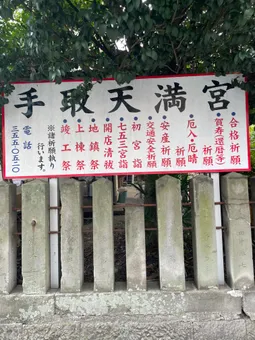 手取天満宮
・合格祈願
・賀寿(還暦等)
祈願
・厄入・厄晴
祈願
・安産祈願
・交通安全祈願
・初宮詣
・七五三宮詣
・開店清祓
・地鎮祭
・上棟祭
・竣工祭
※諸祈願執り
行います。
電話
三五五・〇五二〇